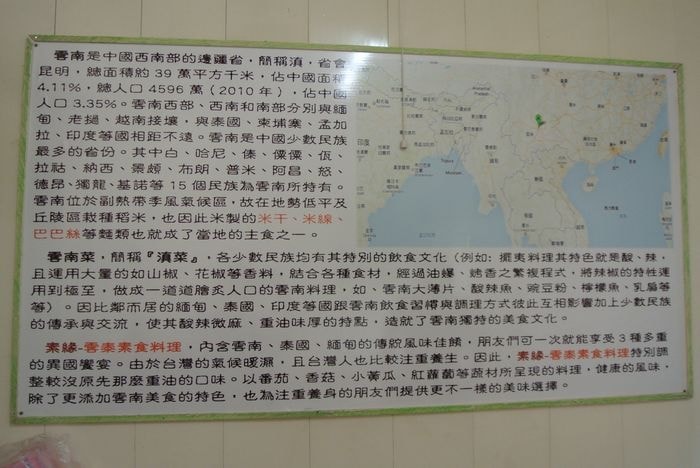 雲南是中國西南部的邊疆省，簡稱滇，省會
昆明，總面積約39萬平方千米，佔中國面積
4.11%，總人口4596萬(2010年)，佔中國
人口3.35%。雲南西部、西南和南部分別與緬
甸、老撾、越南接壤，與泰國、柬埔寨、孟加
拉、印度等國相距不遠。雲南是中國少數民族
最多的省份。其中白、哈尼、傣、傈僳、佤、
拉祜、納西、景頗、布朗、普米、阿昌、怒、
德昂、獨龍、基諾等15個民族為雲南所特有。
雲南位於副熱帶季風氣候區，故在地勢低平及
丘陵區栽種稻米，也因此米製的米干、米線、
巴巴絲等麵類也就成了當地的主食之一。
雲南菜，簡稱『滇菜』，各少數民族均有其特別的飲食文化（例如：擺夷料理其特色就是酸、辣，
且運用大量的如山椒、花椒等香料，結合各種食材，經過油爆、熗香之繁複程式，將辣椒的特性運
用到極至，做成一道道膾炙人口的雲南料理，如、雲南大薄片、酸辣魚、豌豆粉、檸檬魚、乳扇等
等）。因比鄰而居的緬甸、泰國、印度等國跟雲南飲食習慣與調理方式彼此互相影響加上少數民族
的傳承與交流，使其酸辣微麻、重油味厚的特點，造就了雲南獨特的美食文化。
素緣-雲泰素食料理，內含雲南、泰國、緬甸的傳統風味佳餚，朋友們可一次就能享受3種多重
的異國饗宴。由於台灣的氣候暖濕，且台灣人也比較注重養生。因此，素緣-雲泰素食料理特別調
整較沒原先那麼重油的口味。以番茄、香菇、小黃瓜、紅蘿蔔等蔬材所呈現的料理，健康的風味，
除了更添加雲南美食的特色，也為注重養身的朋友們提供更不一樣的美味選擇。
印度
泰國